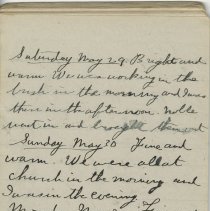 Saturday May 29 Bright and
warm. We were working in the
bush in the morning and I was
there in the afternoon. Nolle
went in and brought them out
Sunday May 30 Fine and
warm. We were all at
church in the morning and
I was in the evening.